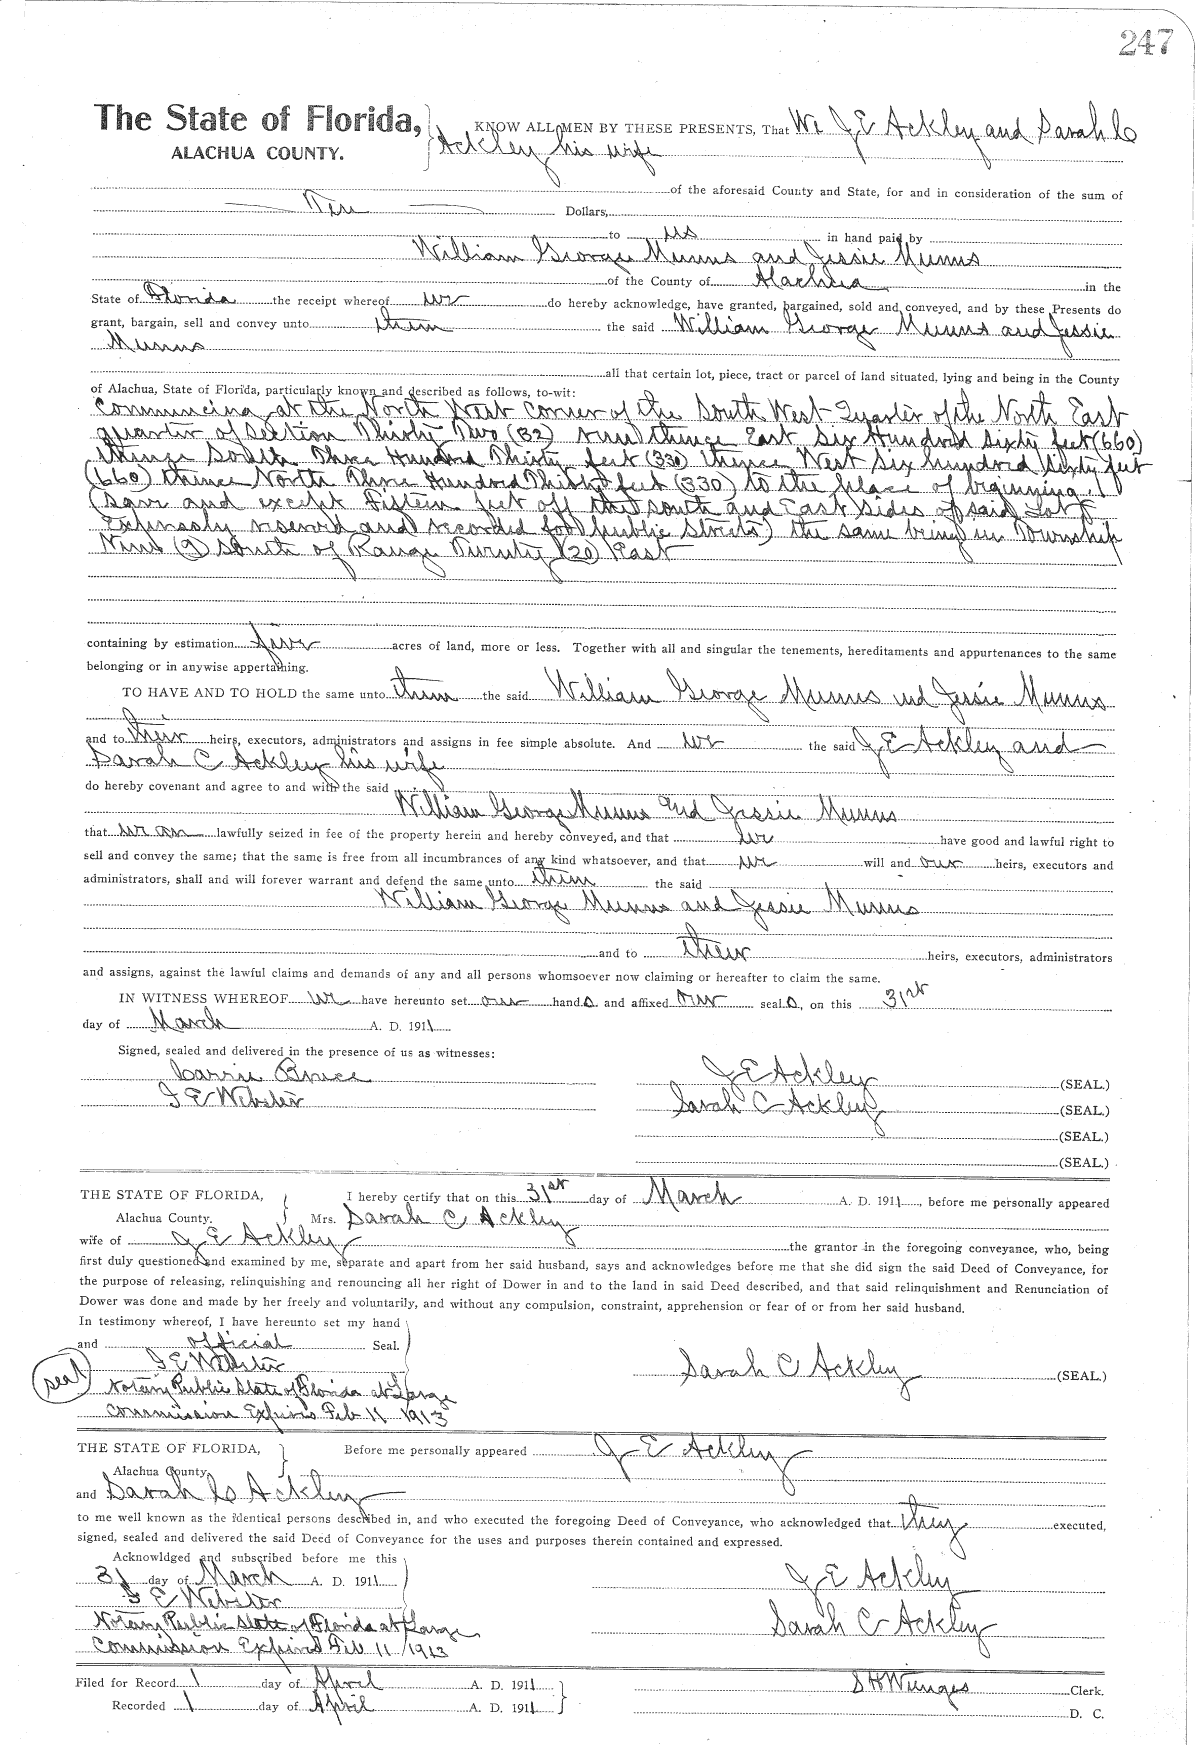 247
The State of Florida, KNOW ALL MEN BY THESE PRESENTS, That We J E Ackley and Sarah C
ALACHUA COUNTY. Ackley his wife
of the aforesaid County and State, for and in consideration of the sum of
Ten Dollars,
to us in hand paid by
William George Munns and Jessie Munns
of the County of Alachua in the
State of Florida the receipt whereof we do hereby acknowledge, have granted, bargained, sold and conveyed, and by these Presents do
grant, bargain, sell and convey unto them the said William George Munns and Jessie
Munns
all that certain lot, piece, tract or parcel of land situated, lying and being in the County
of Alachua, State of Florida, particularly known and described as follows, to-wit:
Commencing at the North West corner of the South West Quarter of the North East
quarter of Section Thirty Two (32) run thence East Six Hundred Sixty feet (660)
thence South Three Hundred Thirty feet (330) thence West Six hundred Sixty feet
(660) thence North Three Hundred Thirty feet (330) to the place of beginning
(Save and except fifteen feet off the South and East sides of said Lot
Expressly reserved and recorded for public streets) the same being in Township
Nine (9) South of Range Twenty (20) East
containing by estimation five acres of land, more or less. Together with all and singular the tenements, hereditaments and appurtenances to the same
belonging or in anywise appertaining.
TO HAVE AND TO HOLD the same unto them the said William George Munns and Jessie Munns
and to their heirs, executors, administrators and assigns in fee simple absolute. And we the said J E Ackley and
Sarah C Ackley his wife
do hereby covenant and agree to and with the said
William George Munns and Jessie Munns
that we are lawfully seized in fee of the property herein and hereby conveyed, and that we have good and lawful right to
sell and convey the same; that the same is free from all incumbrances of any kind whatsoever, and that we will and our heirs, executors and
administrators, shall and will forever warrant and defend the same unto them the said
William George Munns and Jessie Munns
and to their heirs, executors, administrators
and assigns, against the lawful claims and demands of any and all persons whomsoever now claiming or hereafter to claim the same.
IN WITNESS WHEREOF We have hereunto set our hand s and affixed our seal s, on this 31st
day of March A. D. 1911
Signed, sealed and delivered in the presence of us as witnesses:
Carrie Bruce J E Ackley (SEAL.)
I E Webster Sarah C Ackley (SEAL.)
(SEAL.)
(SEAL.)
THE STATE OF FLORIDA, I hereby certify that on this 31st day of March A. D. 1911, before me personally appeared
Alachua County. Mrs. Sarah C Ackley
wife of J E Ackley the grantor in the foregoing conveyance, who, being
first duly questioned and examined by me, separate and apart from her said husband, says and acknowledges before me that she did sign the said Deed of Conveyance, for
the purpose of releasing, relinquishing and renouncing all her right of Dower in and to the land in said Deed described, and that said relinquishment and Renunciation of
Dower was done and made by her freely and voluntarily, and without any compulsion, constraint, apprehension or fear of or from her said husband.
In testimony whereof, I have hereunto set my hand
and official Seal.
I E Webster
seal Sarah C Ackley (SEAL.)
Notary Public State of Florida at Large
Commission Expires Feb 11 1913
THE STATE OF FLORIDA, Before me personally appeared J E Ackley
Alachua County.
and Sarah C Ackley
to me well known as the identical persons described in, and who executed the foregoing Deed of Conveyance, who acknowledged that they executed,
signed, sealed and delivered the said Deed of Conveyance for the uses and purposes therein contained and expressed.
Acknowldged and subscribed before me this
31 day of March A. D. 1911 J E Ackley
I E Webster
Notary Public State of Florida at Large Sarah C Ackley
Commission Expires Feb 11 1913
Filed for Record 1 day of April A. D. 1911 S H Wienges Clerk.
Recorded 1 day of April A. D. 1911 D. C.